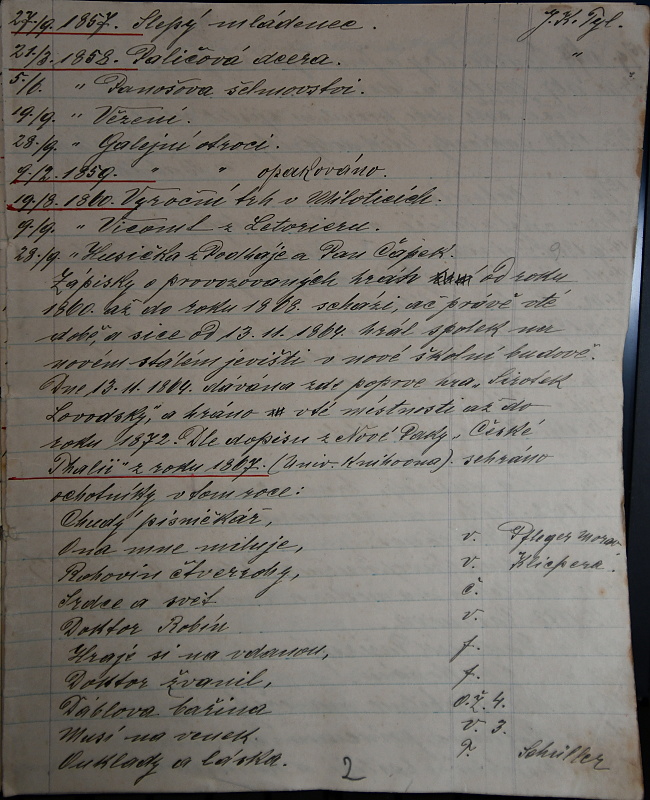 27./9. 1857. Slepý mládenec. J. K. Tyl.
21./3. 1858. Paličova dcera. "
5./1. " Panošova šelmovství.
19./9. " Vězení.
28./9. " Galejní otroci.
9./2. 1859. " " opakováno.
19./3. 1860. Výroční trh v Miloticích.
9./9. " Vicomt z Letorieru.
23./9. " Husička z Podháje a Pan Čapek.
Zápisky o provozovaných hrách od roku
1860. až do roku 1868. schází, ač právě v té
době, a sice od 13. 11. 1864. hrál spolek na
novém stálém jevišti v nové školní budově.
Dne 13. 11. 1864. dávána zde poprve hra „Sirotek
Lovodský“, a hráno v té místnosti až do
roku 1872. Dle dopisu z Nové Paky, „České
Thalii“ z roku 1867. (Univ. Knihovna). sehráno
ochotníky v tom roce:
Chudý písničkář,
Ona mne miluje, v. Pfleger Morav.
Rohovín čtverrohý, v. Klicpera.
Srdce a svět č.
Doktor Robín v.
Hraje si na vdanou, f.
Doktor žvanil, f.
Ďáblova bařina o.ž. 4.
Musí na venek. v. 3.
Ouklady a láska. T. Schiller
2